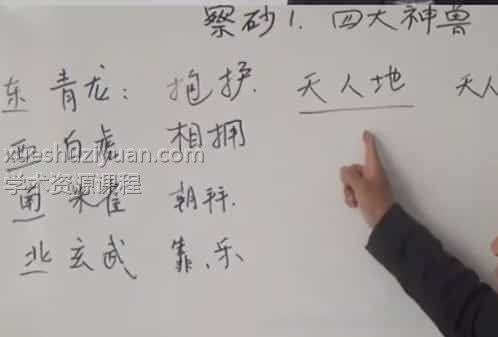 察砂1. 四大神兽
东 青龙: 抱护. 天人地 天人
西 白虎 相拥
xueshuziyuan.com
学术资源课程
南 朱雀 朝拜.
北 玄武 靠、乐